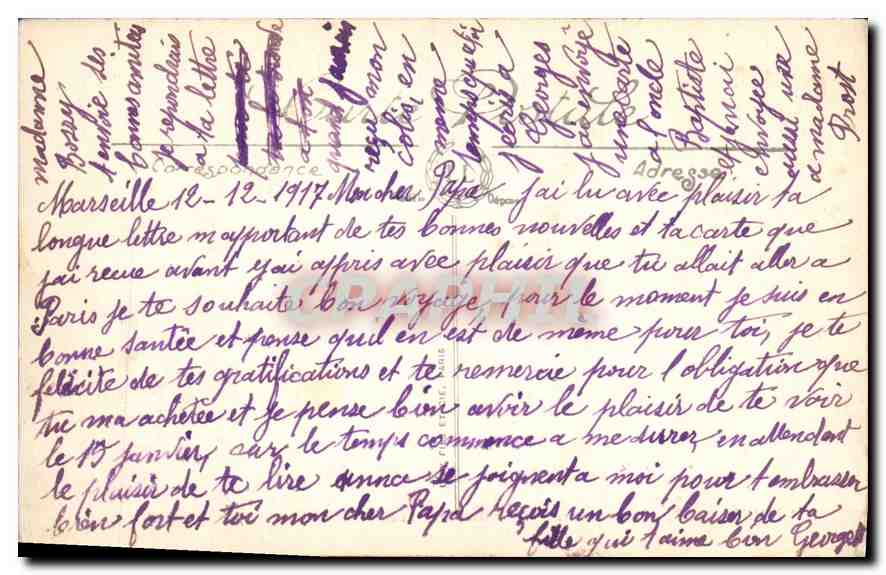 madame
Bossy
t envoie ses
bonnes amities
je repondrais
a ta lettre
quand j aurais
reçu mon
colis en
meme
temps que j'y
ecris a
Georges
j ai envoyé
une carte
a l oncle
Baptiste
et j en ai
envoyee
aussi une
a madame
Prost
Carte Postale
Correspondance
Adresse
Marseille 12 - 12 - 1917 Mon cher Papa j ai lu avec plaisir ta
longue lettre m apportant de tes bonnes nouvelles et ta carte que
j ai reçue avant j ai appris avec plaisir que tu allait aller a
Paris je te souhaite bon voyage, pour le moment je suis en
bonne santée et pense quil en est de même pour toi, je te
félicite de tes gratifications et te remercie pour l obligation que
tu ma achetée et je pense bien avoir le plaisir de te voir
le 15 janvier, car le temps commence a me durer, en attendant
le plaisir de te lire se joignent a moi pour t embrasser
bien fort et toi mon cher Papa reçois un bon baiser de ta
fille qui t aime bien
CPAPHIL